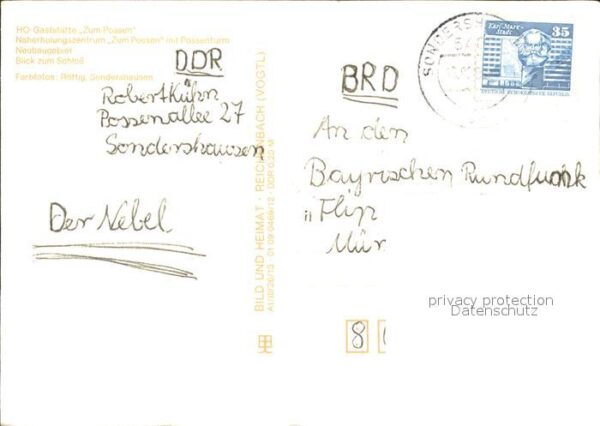 HO-Gaststätte „Zum Possen"
Naherholungszentrum „Zum Possen" mit Possenturm
Neubaugebiet
Blick zum Schloß
Farbfotos: Röttig, Sondershausen
DDR
Robert Kühn
Possenallee 27
Sondershausen
Der Nebel
BILD UND HEIMAT · REICHENBACH (VOGTL)
BRD
An den
Bayrischen Rundfunk
"Flip
Mün
SONDERSH
Karl-Marx-
Stadt
35
DEUTSCHE DEMOKRATISCHE REPUBLIK
privacy protection
Datenschutz
8